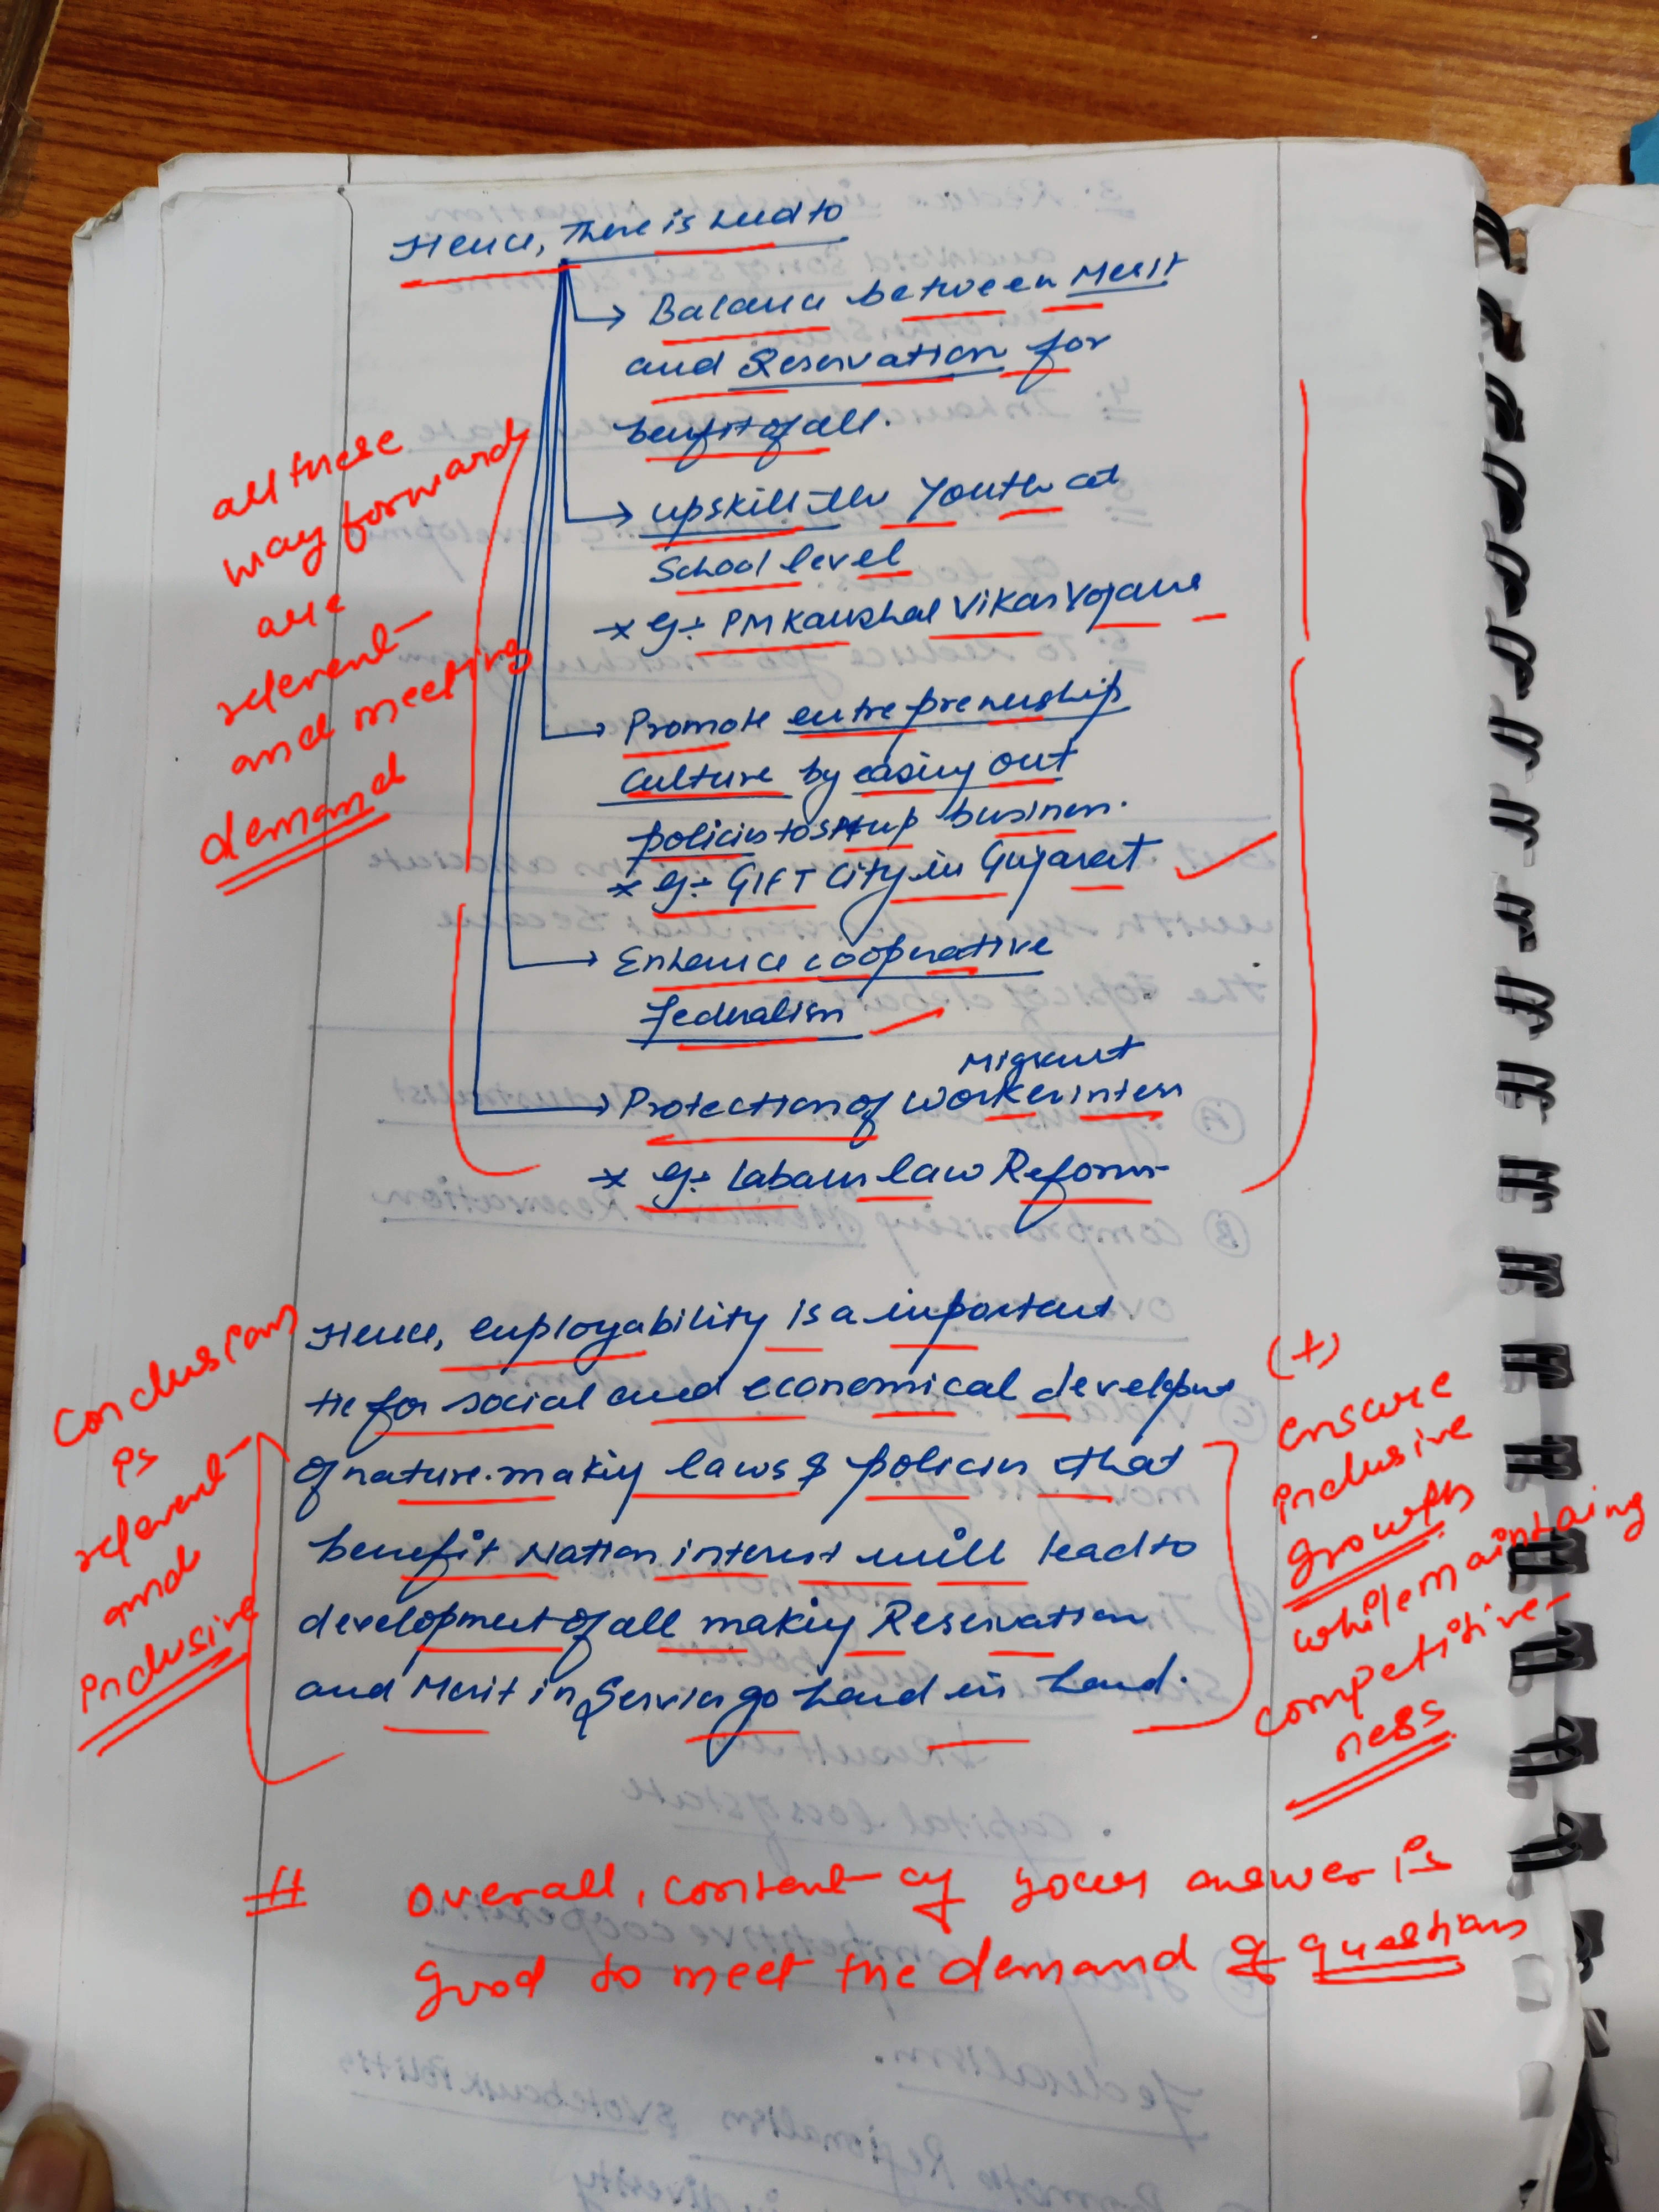 Hence, there is need to
→ Balance between Merit
and Reservation for
benefit of all.
→ upskill the Youth at
School level
* eg:- PM Kaushal Vikas Yojana
→ Promote entreprenuship
culture by easiny out
policies to setup business.
* eg:- GIFT City in Gujarat
→ Enhance cooperative
federalism
Migrant
→ Protection of worker interes
* eg:- Labour law Reforms
all these
way forward
are
relevent
and meeting
demand
Hence, employability is a important
tie for social and economical develop
of nature. making laws & policies that
benefit Nation interest will lead to
development of all making Reservation
and Merit in Service go hand in hand.
Conclusion
is
relevent
and
inclusive
(+)
ensure
inclusive
growth
while maintaing
competitive-
ness
# Overall, content of your answer is
good to meet the demand of question